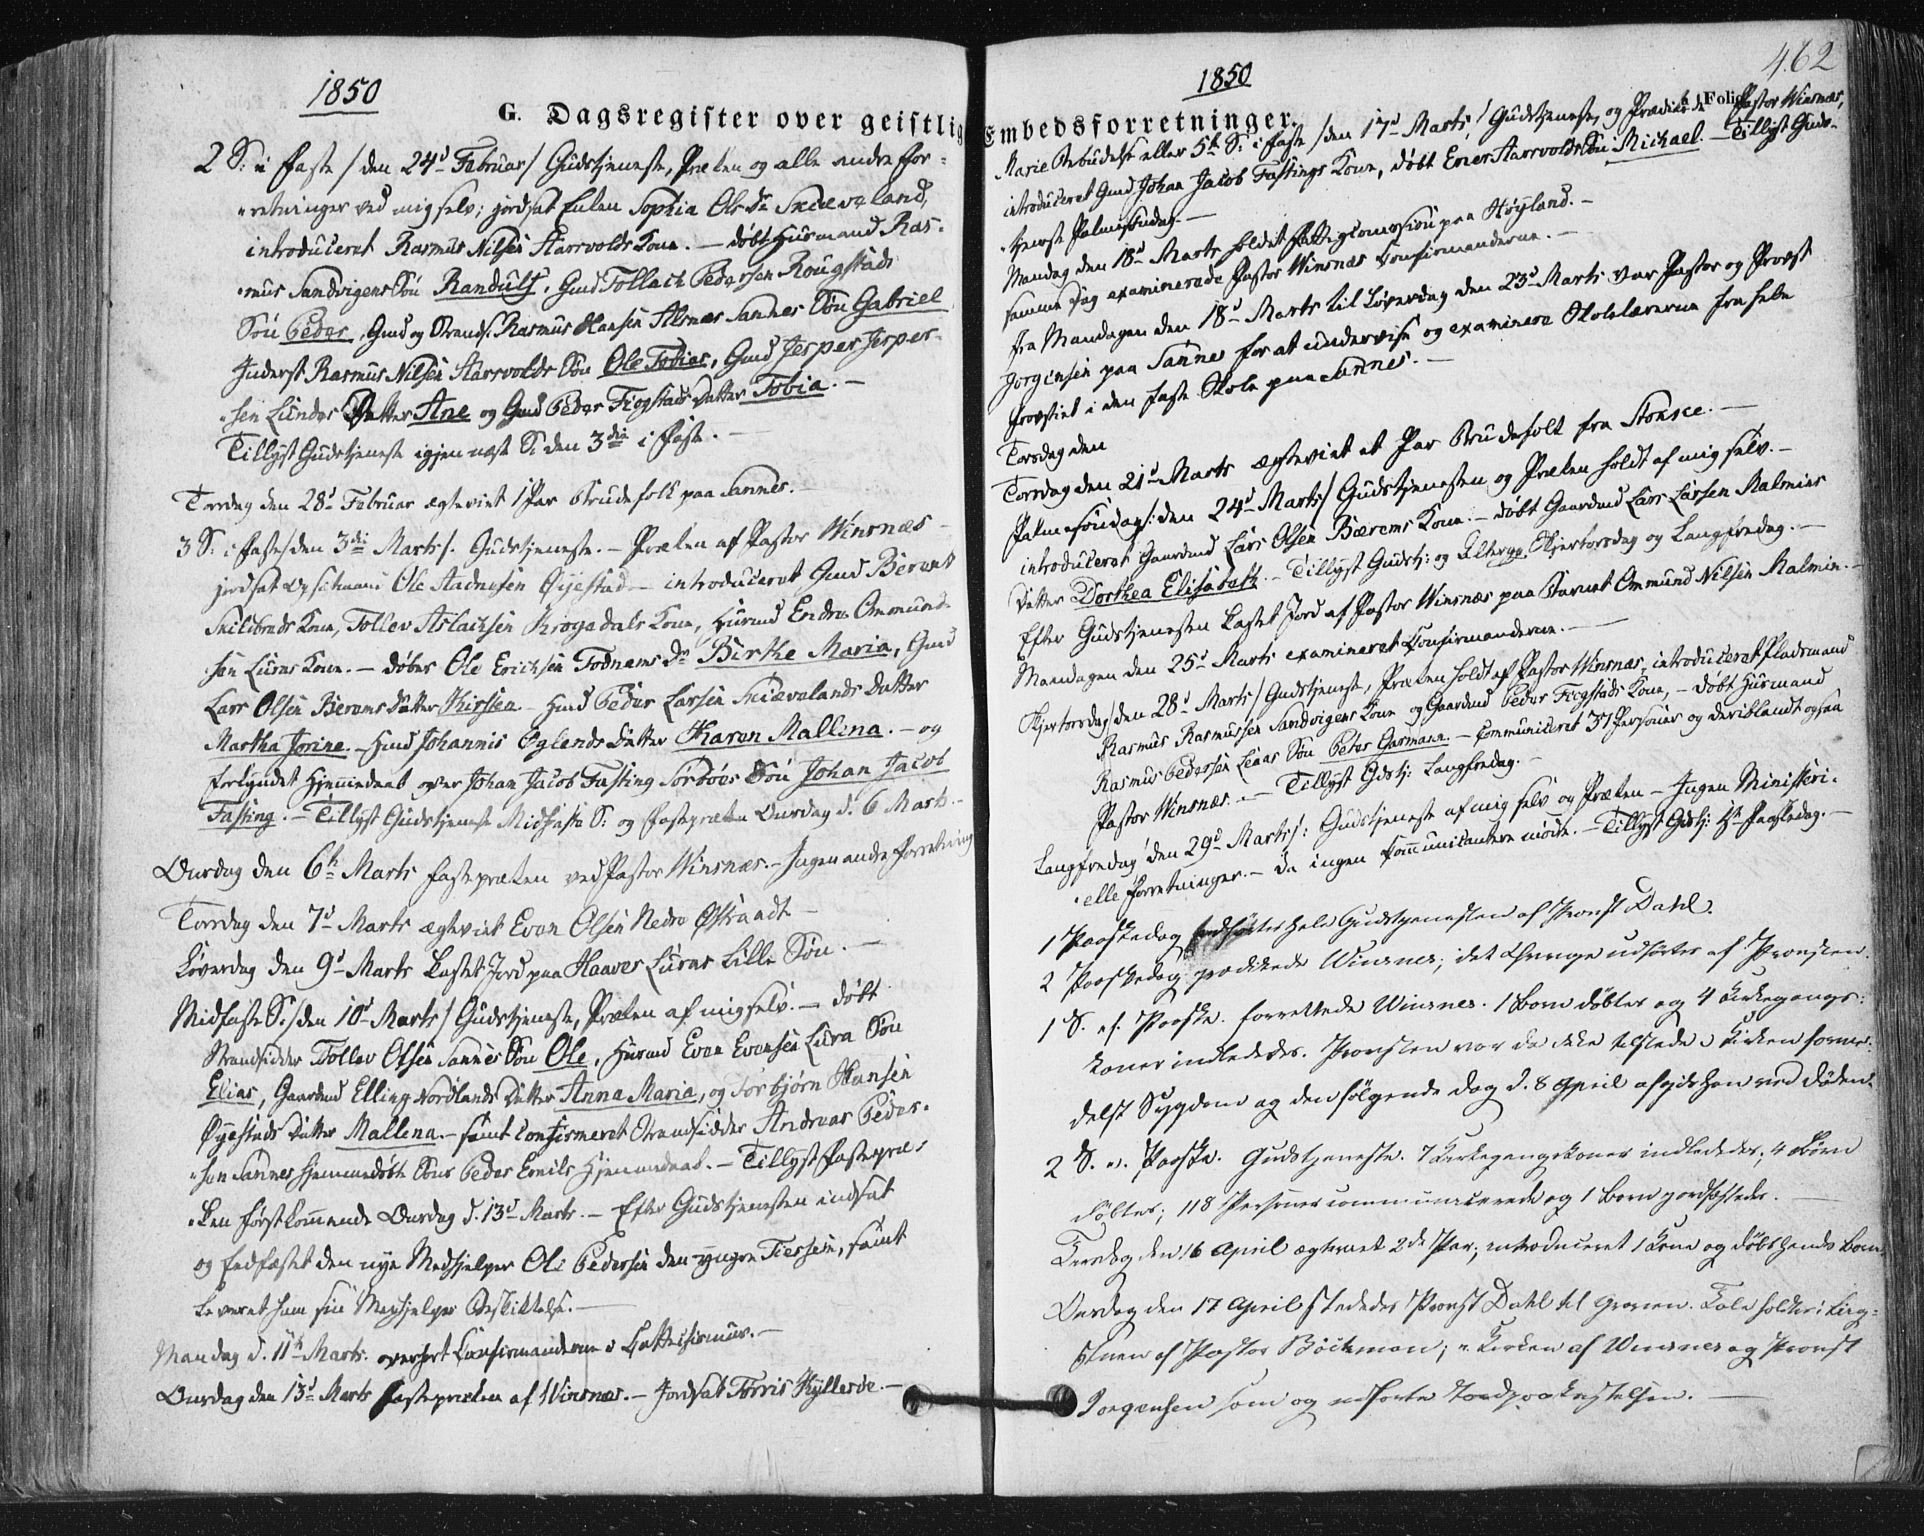 1850
G. Dagsregister over geistlig
2 S: i Faste /den 24d Februar/ Gudstjeneste, Præken og alle andre For-
retninger ved mig selv; jordsat Enken Sophia Ols Dr Skiæveland,
introduceret Rasmus Nilsen Aarrvolds Kone. — døbt Huusmand Ras-
mus Sandvigens Søn Randulf. Gmd Tollach Pedersen Rougstads
Søn Peder, Gmd og Strands. Rasmus Hansen Alsnæs Sannes Søn Gabriel
Inderst Rasmus Nilsen Aarrvolds Søn Ole Tobias, Gmd Jesper Jesper-
sen Lundes Datter Ane og Gmd Peder Fiogstads Datter Tobia. —
Tillyst Gudstjeneste igjen næste S: den 3die i Faste. —
Torsdag den 28d Februar ægteviet 1 Par Brudefolk paa Sannes.
3 S: i Faste /den 3die Marts/. Gudstjeneste. — Præken af Pastor Winsnæs —
jordsat Ole Aadnesen Øyestad — introduceret Gmd Berent
Skilbreds Kone, Tollev Aslachsen Krogedals Kone, Huusmd Endre Ommund-
sen Luras Kone. — døbes Ole Erichsen Todnems Dr Birthe Maria, Gmd
Lars Olsen Bærems Datter Kirstea. — Hmd Peder Larsen Skiævelands Datter
Martha Jorine. — Hmd Johannis Øglends Datter Karen Mallena. — og
forkyndet Hjemmedaab over Johan Jacob Fasting Sørbøes Søn Johan Jacob
Fasting. — Tillyst Gudstjeneste Midfaste S: og Fastepræken Onsdag d. 6 Marts. —
Onsdag den 6te Marts Fastepræken ved Pastor Winsnæs. — Ingen andre Forretning
Torsdag den 7d Marts ægteviet Even Olsen Nedre Østraadt —
Løverdag den 9d Marts kastet Jord paa Haaver Luras lille Søn. —
Midfaste S: /den 10d Marts/ Gudstjeneste, Præken af mig selv. — døbt
Strandsidder Tollev Olsen Sannes Søn Ole, Huusmd Even Evensen Lura Søn
Elias, Gaardmd Elling Nordlands Datter Anna Maria, og Torbjørn Hansen
Øyestads Datter Mallena. — samt confirmeret Strandsidder Andreas Peder-
sen Sannes hjemmedøbte Søns Peder Emils Hjemmedaab. — Tillyst Fastepræ-
ken førstkommende Onsdag d. 13d Marts. — Efter Gudstjenesten indsat
og edfæstet den nye Medhjelper Ole Pedersen den yngre Tiessem, samt
leveret ham sin Medhjelper Beskikkelse. —
Mandag d. 11te Marts. overhørt Confirmanderne i Cattechismus. —
Onsdag den 13d Marts Fastepræken af Winsnæs. — Jordsat Torris Kyllesøe. —
1850
462
Embedsforretninger.
Folio
Marie Bebudelse eller 5te S: i Faste /den 17d Marts/ Gudstjeneste, og Prædiken Pastor Winsnæs,
introduceret Gmd Johan Jacob Fastings Kone, døbt Ener Aarrvolds Søn Michael. — Tillyst Guds-
tjeneste Palmesøndag. —
Mandag den 18d Marts holdet Fattigcommission paa Høyland. —
samme Dag examinerede Pastor Winsnæs Confirmanderne. —
Fra Mandagen den 18d Marts til Løverdag den 23d Marts var Pastor og Provst
Jørgensen paa Sannes for at undervise og examinere Skolelærerne fra hele
Provstiet i den faste Skole paa Sannes. —
Torsdag den
Torsdag den 21d Marts ægteviet et Par Brudefolk fra Stousee. —
Palmesøndag /: den 24d Marts/ Gudstjenesten og Præken holdt af mig selv. —
introduceret Gaardmd Lars Olsen Bærems Kone. — døbt Gaardmd Lars Larsen Malmins
Datter Dorthea Elisabeth. — Tillyst Gudstj: og Skjertorsdag og Langfredag. —
Efter Gudstjenesten kastet Jord af Pastor Winsnæs paa Barnet Ommund Nilsen Malmin. —
Mandagen den 25d Marts examineret Confirmanderne. —
Skjertorsdag /den 28d Marts/ Gudstjeneste, Præken holdt af Pastor Winsnæs, introduceret Pladsmand
Rasmus Rasmussen Sandvigens Kone og Gaardmd Peder Fiogstads Kone, — døbt Huusmand
Rasmus Pedersen Leaas Søn Peter Garmann. — Communiceret 37 Personer og deriblandt ogsaa
Pastor Winsnæs. — Tillyst Gdstj: Langfredag. —
Langfredag den 29d Marts /: Gudstjeneste af mig selv og Præken — Ingen Ministeri-
elle Forretninger. — Da ingen Communicantere mødte. — Tillyst Gdstj: 1te Paaskedag. —
1 Paaskedag hele Gudstjenesten af Provst Dahl.
2 Paaskedag prædikede Winsnes; det Øvrige udførtes af Provsten.
1 S. ef. Paaske. forrettede Winsnes. 1 Barn døbtes og 4 Kirkegangs-
koner indlededes. Provsten var da ikke tilstede i Kirken forme-
delst Sygdom og den følgende Dag d. 8 April afgik han ved Døden.
2 S. e. Paaske. Gudstjeneste. 7 Kirkegangskoner indlededes; 4 Børn
døbtes; 118 Personer communicerede og 1 Barn jordfæstedes. —
Tirsdag den 16 April ægteviet 2de Par; introduceret 1 Kone og døbt hendes Barn
Onsdag den 17 April stededes Provst Dahl til Graven. Tale holdtes i Liig-
stuen af Pastor Böckman; i Kirken af Winsnes og Provst
Jørgensen som og udførte Jordpaakastelsen. —